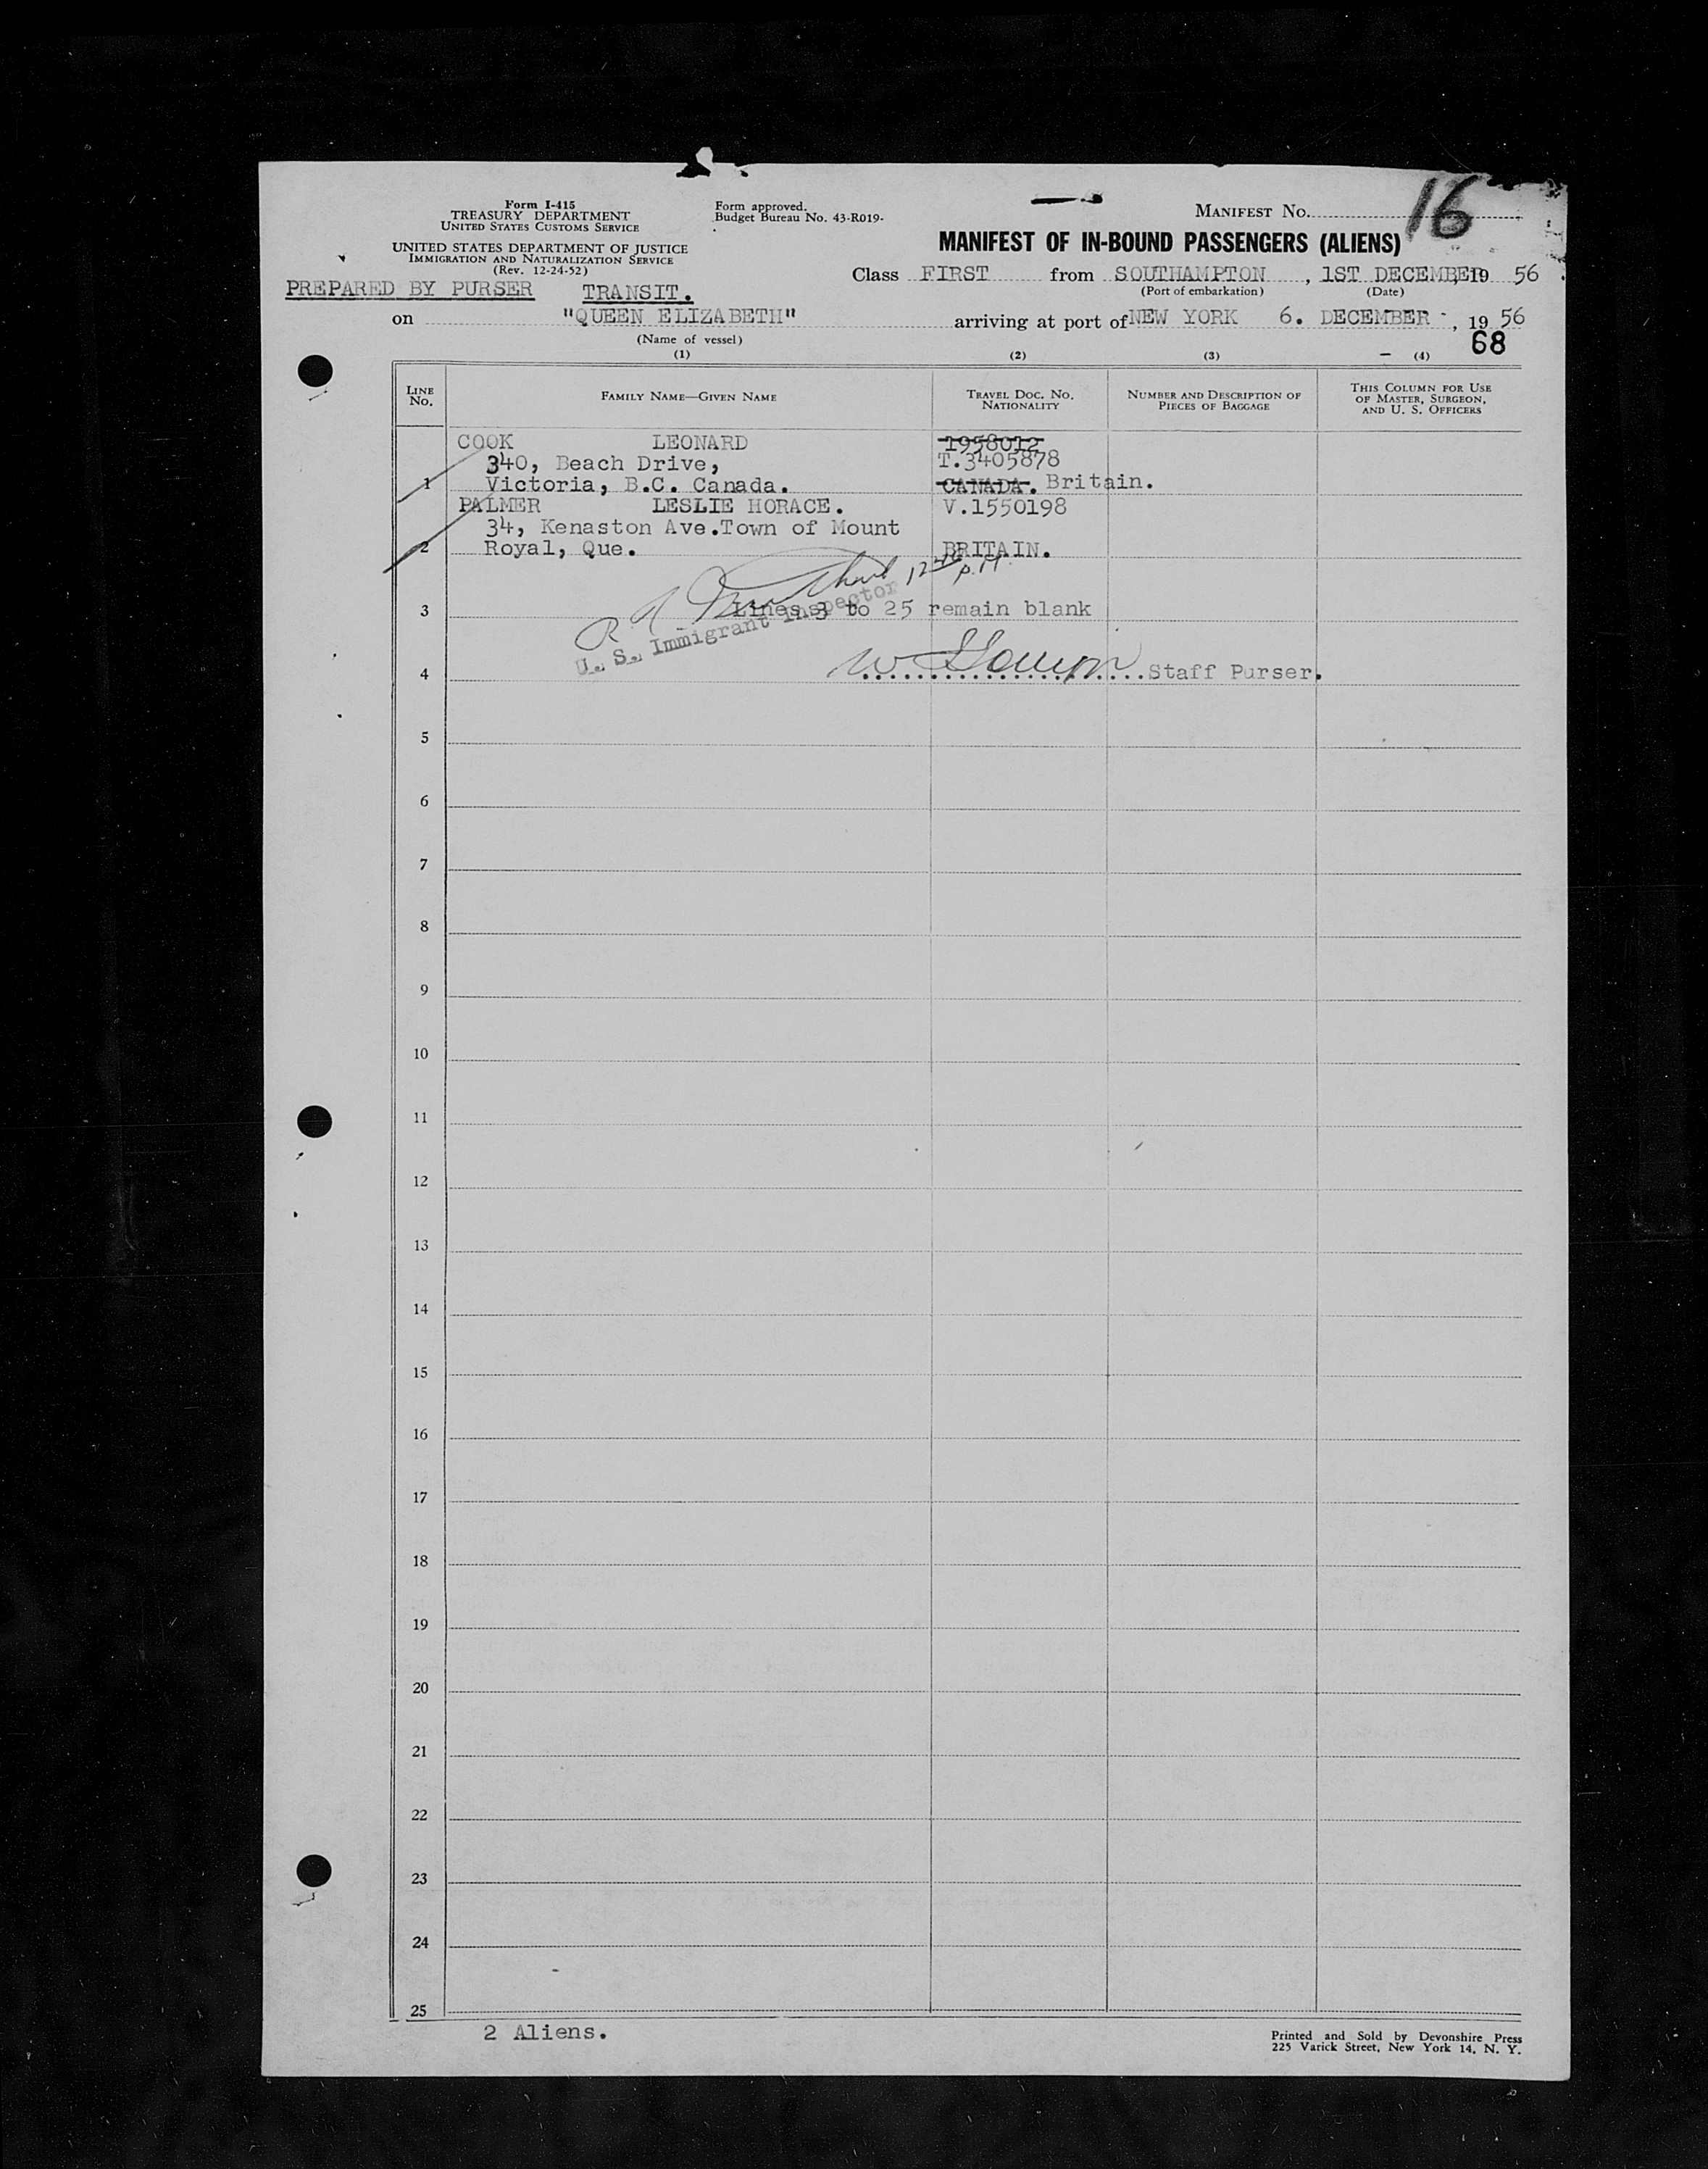 Form I-415
TREASURY DEPARTMENT
UNITED STATES CUSTOMS SERVICE
UNITED STATES DEPARTMENT OF JUSTICE
IMMIGRATION AND NATURALIZATION SERVICE
(Rev. 12-24-52)
Form approved.
Budget Bureau No. 43-R019-
MANIFEST NO. 16
MANIFEST OF IN-BOUND PASSENGERS (ALIENS)
Class FIRST from SOUTHAMPTON, 1ST DECEMBER, 19 56
(Port of embarkation) (Date)
PREPARED BY PURSER TRANSIT.
on "QUEEN ELIZABETH" arriving at port of NEW YORK 6. DECEMBER, 19 56
(Name of vessel)
68
(1) (2) (3) (4)
LINE NO. FAMILY NAME—GIVEN NAME TRAVEL DOC. NO. NATIONALITY NUMBER AND DESCRIPTION OF PIECES OF BAGGAGE THIS COLUMN FOR USE OF MASTER, SURGEON, AND U. S. OFFICERS
COOK LEONARD 1958012
340, Beach Drive, T.3405878
1 Victoria, B.C. Canada. CANADA. Britain.
PALMER LESLIE HORACE. V.1550198
34, Kenaston Ave.Town of Mount
2 Royal, Que. BRITAIN.
3 Lines 3 to 25 remain blank
U. S. Immigrant Inspector
4 Staff Purser.
5
6
7
8
9
10
11
12
13
14
15
16
17
18
19
20
21
22
23
24
25
2 Aliens.
Printed and Sold by Devonshire Press
225 Varick Street, New York 14, N. Y.